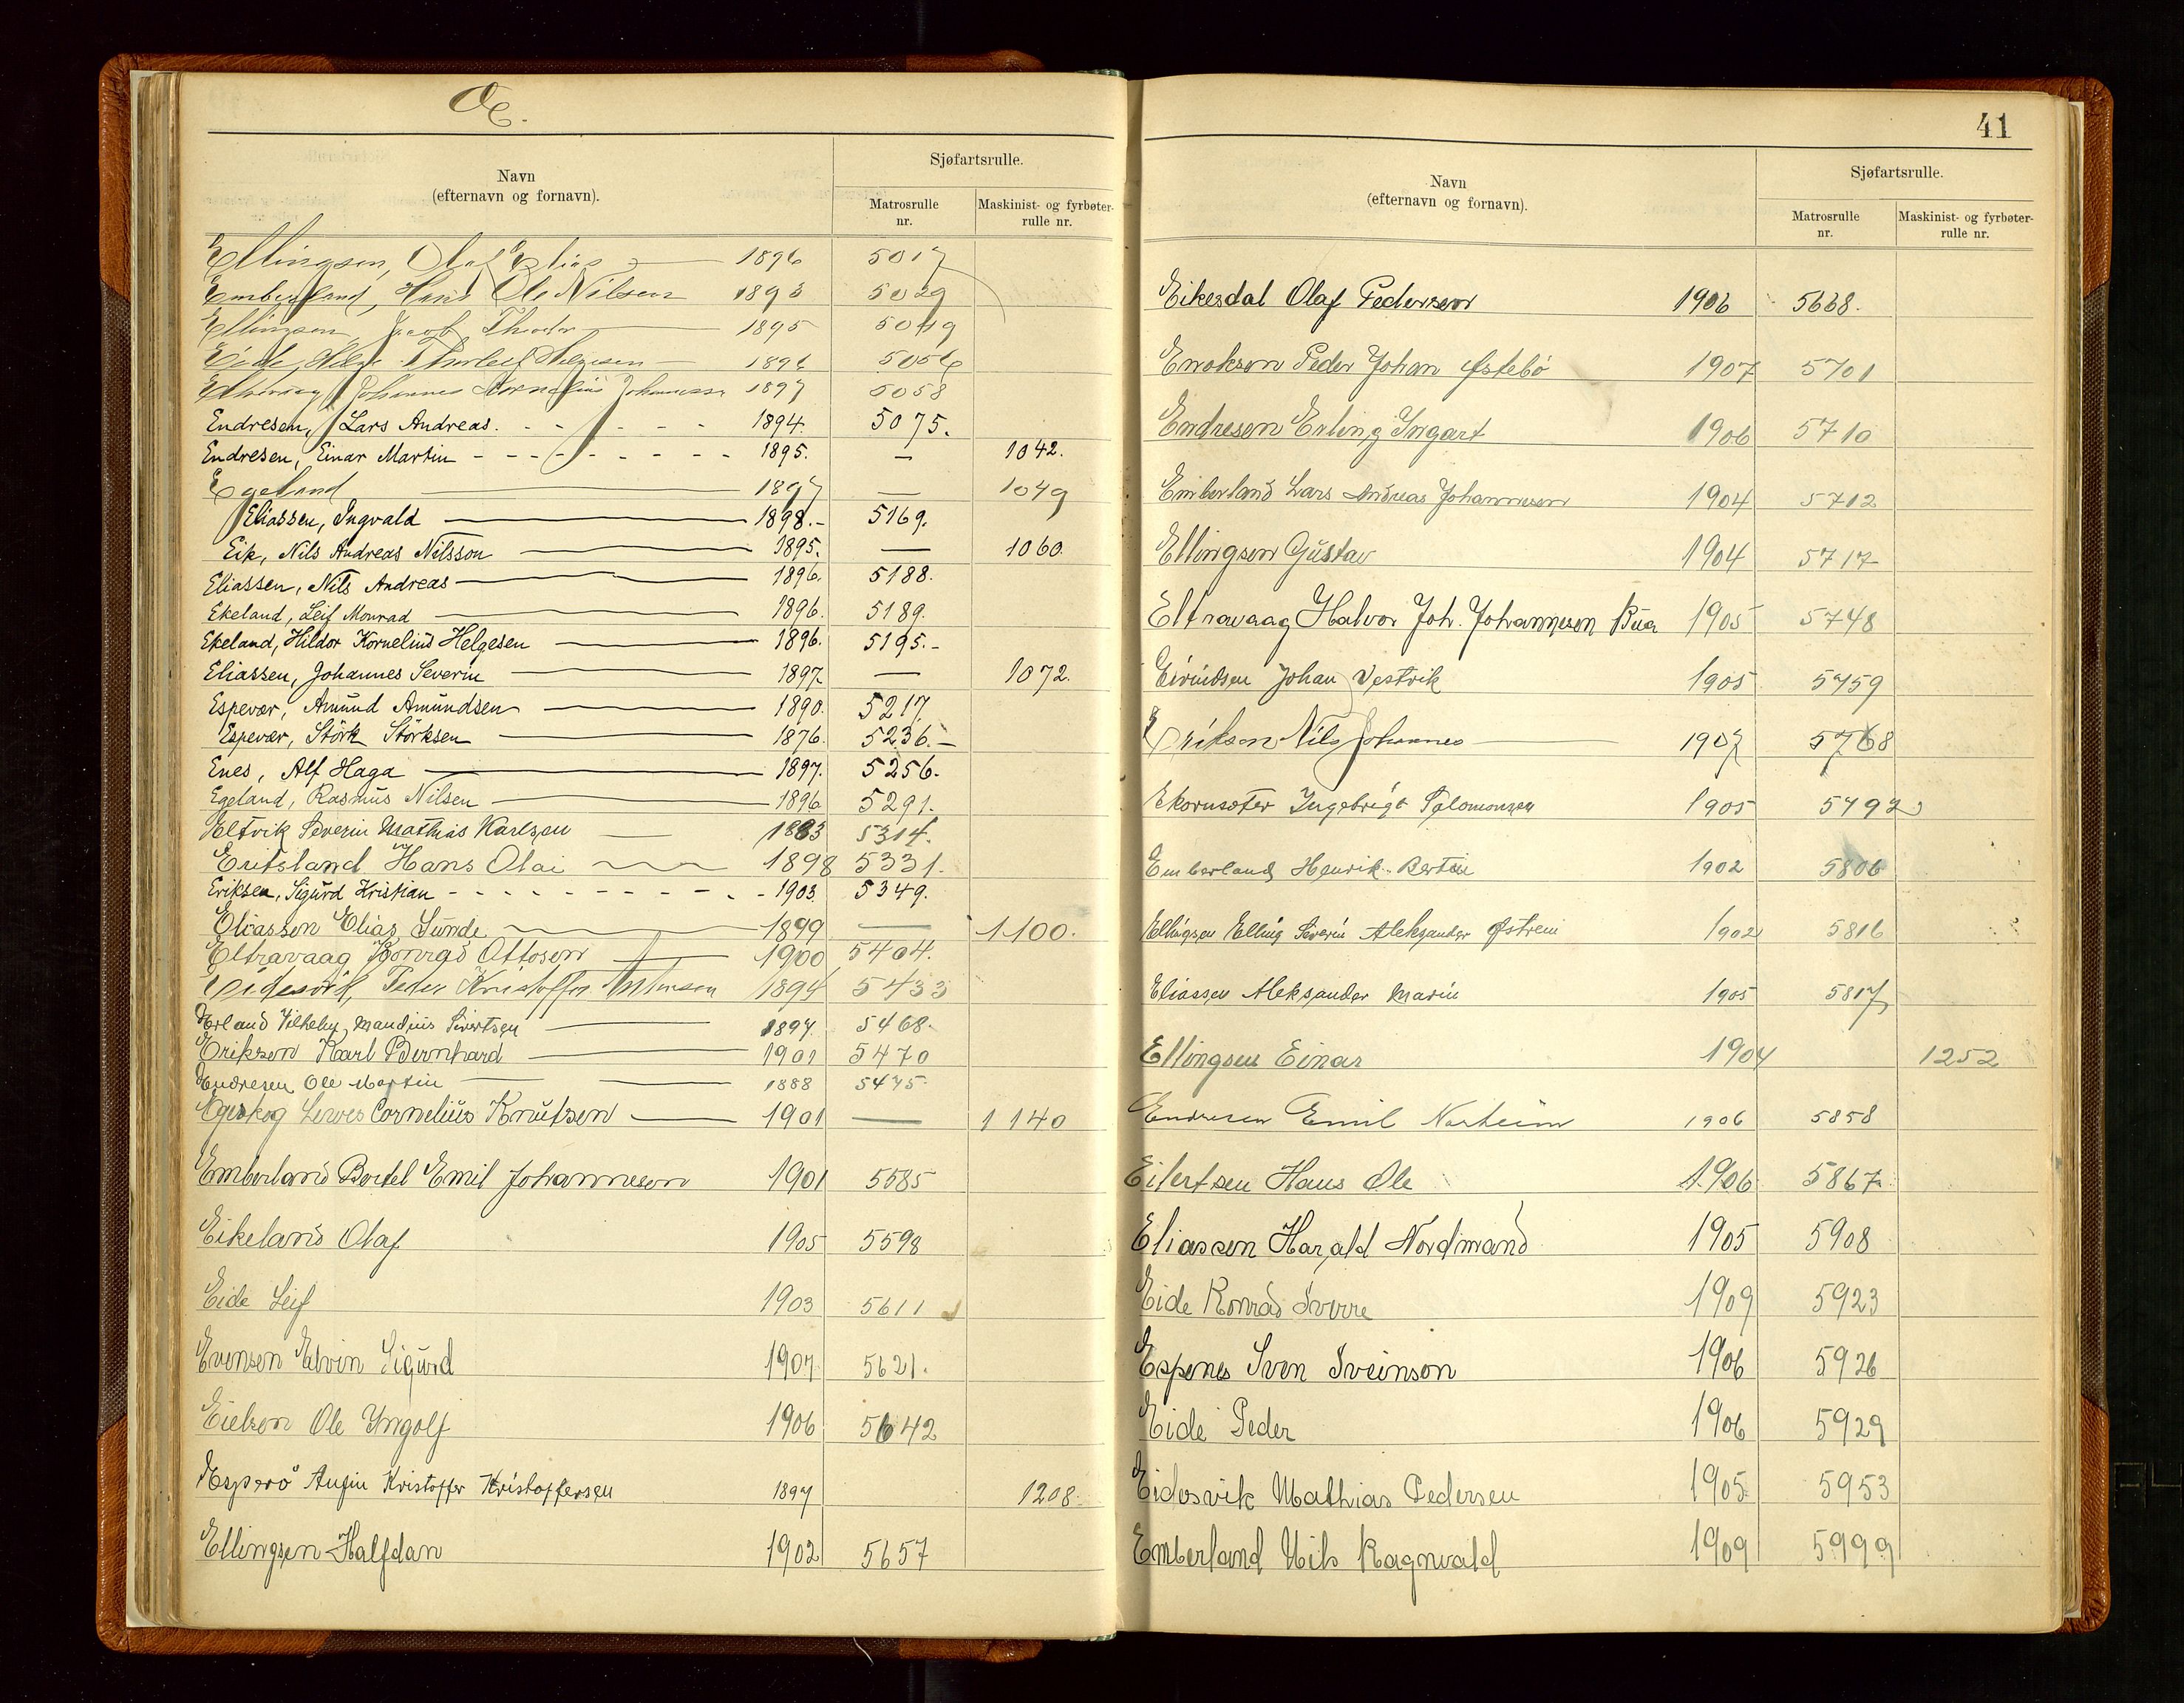 E.
Navn
(efternavn og fornavn).
Sjøfartsrulle.
Matrosrulle
nr.
Maskinist- og fyrbøter-
rulle nr.
Ellingsen, Olaf Elias 1896 5017
Emberland, Hans Ole Nilsen 1893 5029
Ellingsen, Jacob Theodor 1895 5049
Eide, Helge Thorleif Helgesen 1896 5056
Johannes Kornelius Johannessen 1897 5058
Endresen, Lars Andreas. - - - - - 1894. 5075.
Endresen, Einar Martin - - - - - - - - - 1895. — 1042.
Egeland — 1897 — 1049
Eliassen, Ingvald — 1898.- 5169.
Eik, Nils Andreas Nilsson — 1895. — 1060.
Eliassen, Nils Andreas — 1896. 5188.
Ekeland, Leif Monrad — 1896. 5189.
Ekeland, Hildor Kornelius Helgesen — 1896. 5195.-
Eliassen, Johannes Severin — 1897. — 1072.
Espevær, Amund Amundsen — 1890. 5217.
Espevær, Störk Störksen — 1876. 5236.-
Enes, Alf Haga — 1897. 5256.
Egeland, Rasmus Nilsen — 1896 5291.
Eltvik Severin Mathias Karlsen — 1883 5314.
Eritsland Hans Olai — 1898 5331.
Eriksen, Sigurd Kristian - - - - - - - - - 1903. 5349.
Eliassen Elias Sunde — 1899 — 1100.
Eltravaag Konrad Ottosen — 1900 5404.
Eidesvik, Peder Kristoffer 1894 5433
Erland Vilhelm Mandius Sivertsen — 1897. 5468.
Erikson Karl Bernhard — 1901 5470
Endresen Ole Martin — 1888 5475.
Egeskog Cornelius Knutsen — 1901 — 1140
Emberland Bertel Emil Johannesen 1901 5585
Eikeland Olaf 1905 5598
Eide Leif 1903 5611
Evensen Edvin Sigurd 1907 5621.
Eielsen Ole Yngolf 1906 5642
Esperö Kristoffer Kristoffersen 1897 1208.
Ellingsen Halfdan 1902 5657
41
Navn
(efternavn og fornavn).
Sjøfartsrulle.
Matrosrulle
nr.
Maskinist- og fyrbøter-
rulle nr.
Eikesdal Olaf Pedersen 1906 5668.
Enokson Peder Johan Østebö 1907 5701
Endresen Erling Ingart 1906 5710
Emberland Lars Andreas Johannesen 1904 5712
Ellingsen Gustav 1904 5717
Eltravaag Halvor Joh. Johannesen Bua 1905 5748
Eivindsen Johan Vestvik 1905 5759
Erikson Nils Johannes — 1907 5768
Ekornsæter Ingebrigt Salomonsen 1905 5792
Emberland Henrik Bertin 1902 5806
Ellingsen Elling Severin Aleksander Østrem 1902 5816
Eliassen Aleksander Marin 1905 5817
Ellingsen Einar 1904 1252
Endresen Emil Norheim 1906 5858
Eilertsen Hans Ole 1906 5867
Eliassen Harald Nordmand 1905 5908
Eide Konrad Sverre 1909 5923
Espenes Sven Sveinson 1906 5926
Eide Peder 1906 5929
Eidesvik Mathias Pedersen 1905 5953
Emberland Nils Ragnvald 1909 5999